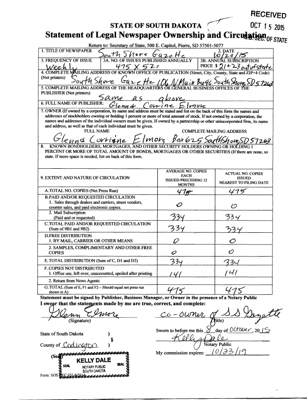 RECEIVED
OCT 15 2015
SEC. OF STATE
STATE OF SOUTH DAKOTA
Statement of Legal Newspaper Ownership and Circulation
Return to: Secretary of State, 500 E. Capitol, Pierre, SD 57501-5077
1. TITLE OF NEWSPAPER
South Shore Gazette
2. DATE
3. FREQUENCY OF ISSUE
Weekly
3A. NO. OF ISSUES PUBLISHED ANNUALLY
3B. ANNUAL SUBSCRIPTION PRICE $
4. COMPLETE MAILING ADDRESS OF KNOWN OFFICE OF PUBLICATION (Street, City, County, State and ZIP+4 Code)
(Not printers)
South Shore Gazette
5. COMPLETE MAILING ADDRESS OF THE HEADQUARTERS OR GENERAL BUSINESS OFFICES OF THE
PUBLISHER (Not printers)
Same as above
6. FULL NAME OF PUBLISHER:
Glenna Corrine Elmore
7. OWNER (If owned by a corporation, its name and address must be stated and list on the back of this form the names and
addresses of stockholders owning or holding 1 percent or more of total amount of stock. If not owned by a corporation, the
names and addresses of the individual owners must be given. If owned by a partnership or other unincorporated firm, its name
and address, as well as that of each individual must be given.
FULL NAME
COMPLETE MAILING ADDRESS
8. KNOWN BONDHOLDERS, MORTGAGEES, AND OTHER SECURITY HOLDERS OWNING OR HOLDING 1
PERCENT OR MORE OF TOTAL AMOUNT OF BONDS, MORTGAGES OR OTHER SECURITIES (If there are none, so
state. If more space is needed, list on back of this form.
9. EXTENT AND NATURE OF CIRCULATION
AVERAGE NO. COPIES
EACH
ISSUED PRECEDING 12
MONTHS
ACTUAL NO. COPIES
ISSUED
NEAREST TO FILING DATE
A. TOTAL NO. COPIES (Net Press Run)
475
475
B. PAID AND/OR REQUESTED CIRCULATION
1. Sales through dealers and carriers, street vendors,
counter sales, and paid electronic copies.
0
0
2. Mail Subscription
(Paid and or requested)
334
334
C. TOTAL PAID AND/OR REQUESTED CIRCULATION
(Sum of 9B1 and 9B2)
334
334
D. FREE DISTRIBUTION
1. BY MAIL, CARRIER OR OTHER MEANS
0
0
2. SAMPLES, COMPLIMENTARY AND OTHER FREE
COPIES
0
0
E. TOTAL DISTRIBUTION (Sum of C, D1 and D2)
334
334
F. COPIES NOT DISTRIBUTED
1. Office use, left over, unaccounted, spoiled after printing
141
141
2. Return from News Agents
G. TOTAL (Sum of E, F1 and F2 - Should equal net press run
shown in A)
475
475
Statement must be signed by Publisher, Business Manager, or Owner in the presence of a Notary Public
I swear that the statements made by me are true, correct, and complete:
(Signature)
co-owner of SS Gazette
(Title)
State of South Dakota )
County of Codington )
Sworn to before me this
day of October, 2015
Kelly Dale
Notary Public
My commission expires: 10/23/19
KELLY DALE
NOTARY PUBLIC
SOUTH DAKOTA
SEAL
SEAL